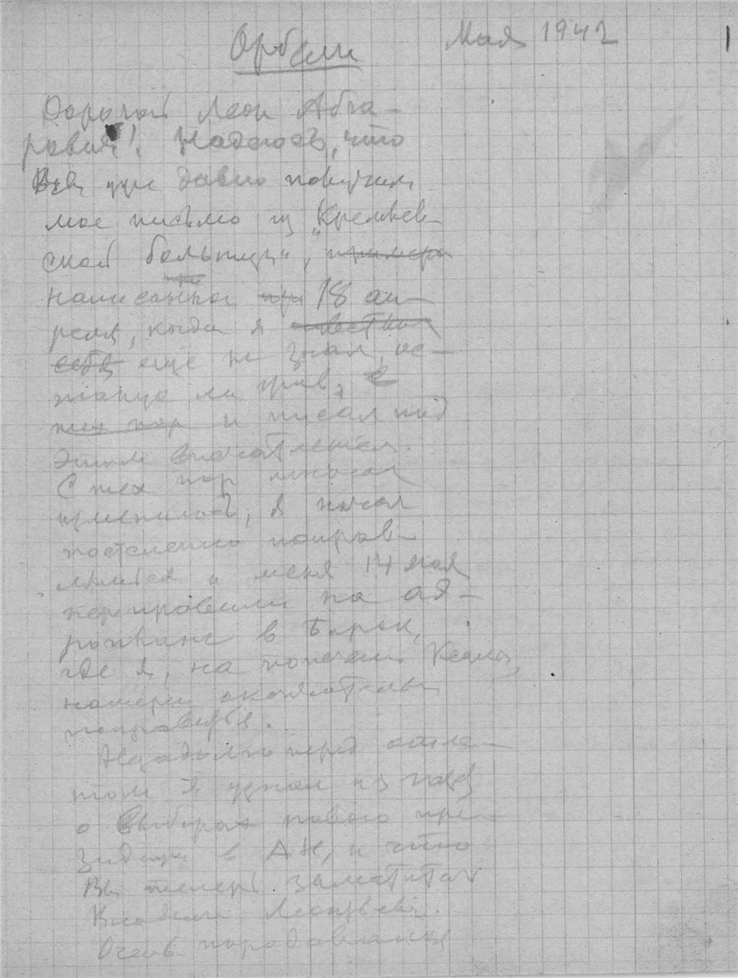 Орбели Мая 1942 1
Дорогой Леон Абга-
рович! Надеюсь, что
Вы уже давно получили
мое письмо из "Кремлев-
ской больницы",
написанное 18 ап-
реля, когда я
еще не знал, ос-
танусь ли жив,
тех пор и писал под
этим впечатлением.
С тех пор многое
изменилось, я начал
постепенно поправ-
ляться и меня 14 мая
перевезли на аэ-
роплане в Борок,
где я, на попечении
намерен окончательно
поправиться.
Незадолго перед отле-
том я узнал из газет
о выборах нового пре-
зидента в АН, и что
Вы теперь заместитель
Владимир Леонтьевич.
Очень порадовался